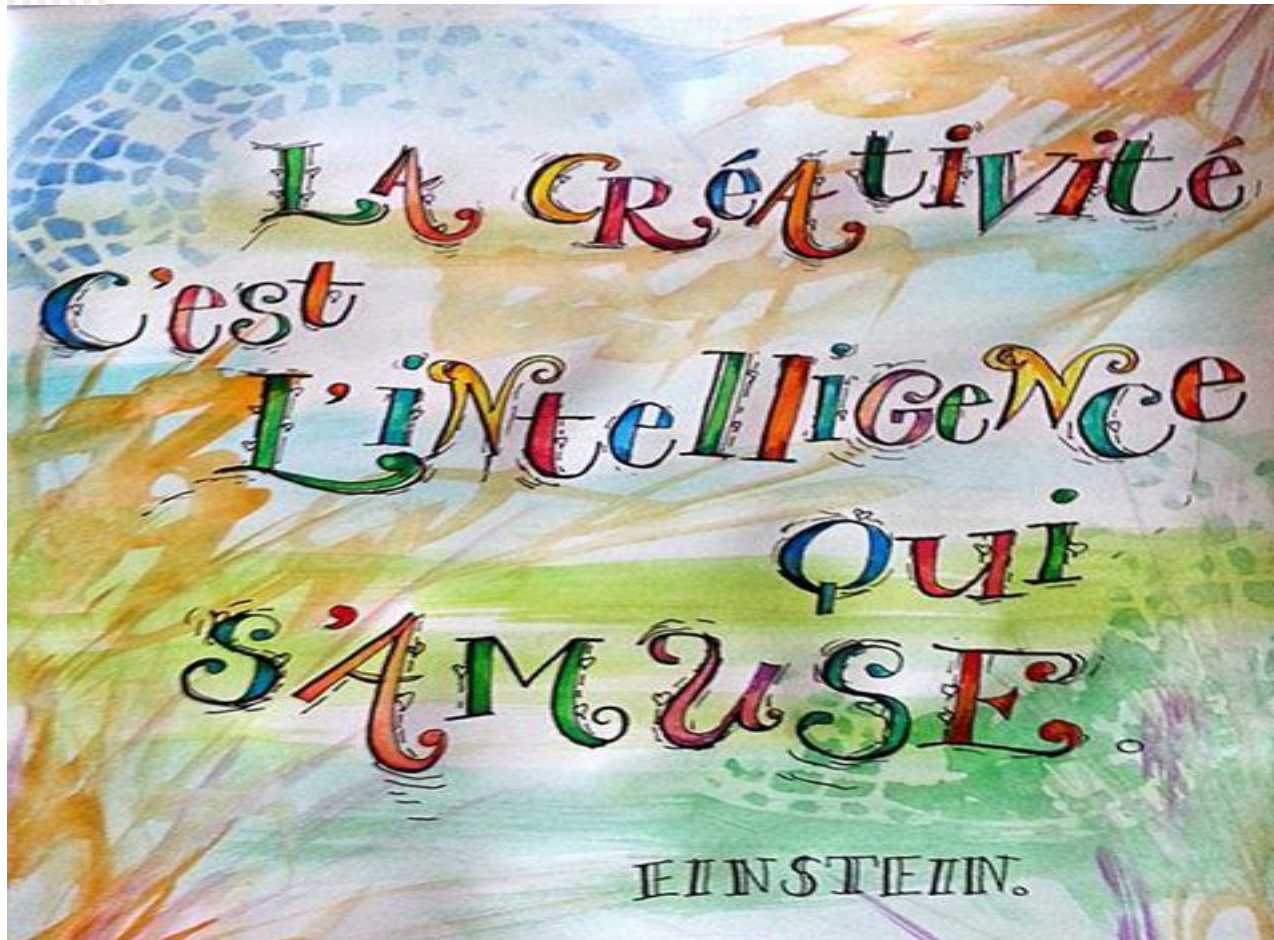 LA CRéAtiVité
C'est
L'iNtelligeNce
Qui
S'AMUSE.
EINSTEIN.